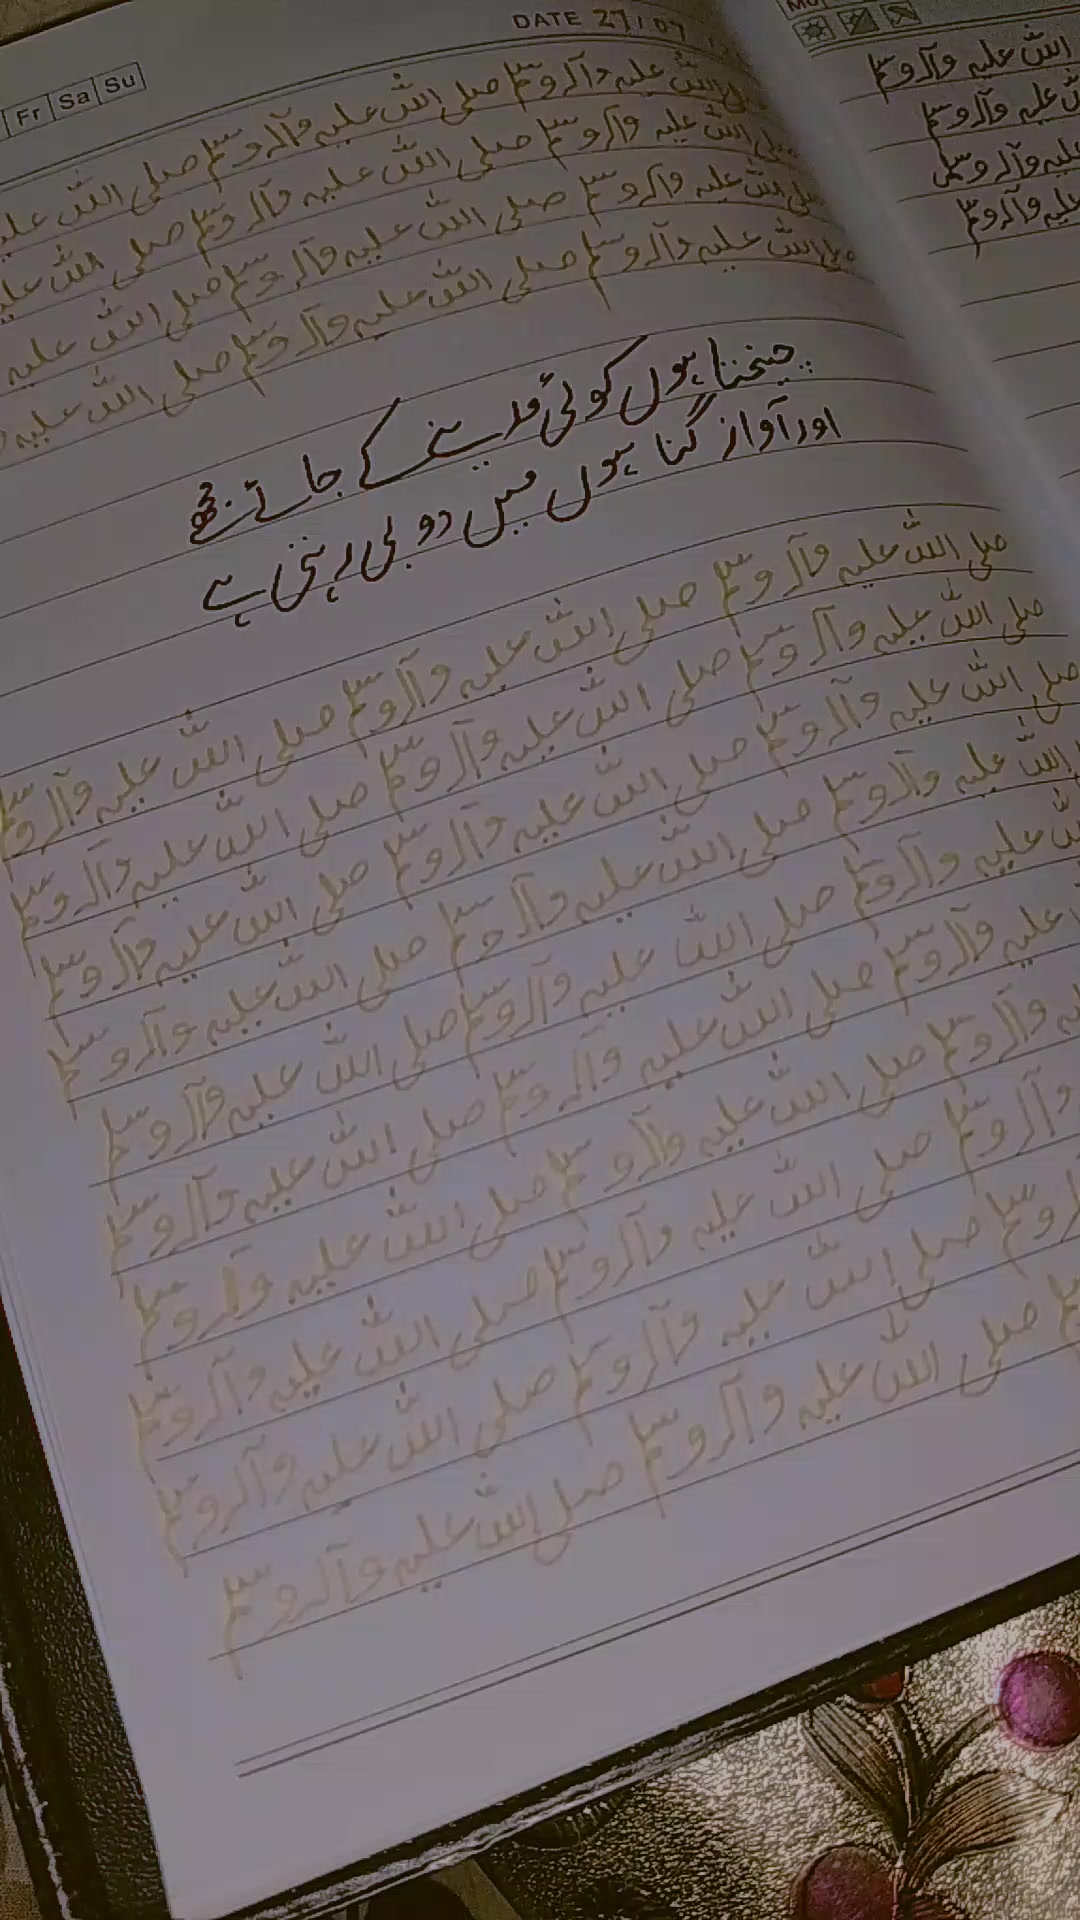 DATE 27/07
Fr Sa Su
صلی اللہ علیہ وآلہ وسلم صلی اللہ علیہ وآلہ وسلم صلی اللہ علیہ
صلی اللہ علیہ وآلہ وسلم صلی اللہ علیہ وآلہ وسلم صلی اللہ علیہ
صلی اللہ علیہ وآلہ وسلم صلی اللہ علیہ وآلہ وسلم صلی اللہ علیہ
صلی اللہ علیہ وآلہ وسلم صلی اللہ علیہ وآلہ وسلم صلی اللہ علیہ
چیختا ہوں کوئی مدینے لے جائے مجھے
اور آواز گناہوں میں دوبی رہتی ہے
صلی اللہ علیہ وآلہ وسلم صلی اللہ علیہ وآلہ وسلم صلی اللہ علیہ وآلہ وسلم
صلی اللہ علیہ وآلہ وسلم صلی اللہ علیہ وآلہ وسلم صلی اللہ علیہ وآلہ وسلم
صلی اللہ علیہ وآلہ وسلم صلی اللہ علیہ وآلہ وسلم صلی اللہ علیہ وآلہ وسلم
اللہ علیہ وآلہ وسلم صلی اللہ علیہ وآلہ وسلم صلی اللہ علیہ وآلہ وسلم
اللہ علیہ وآلہ وسلم صلی اللہ علیہ وآلہ وسلم صلی اللہ علیہ وآلہ وسلم
علیہ وآلہ وسلم صلی اللہ علیہ وآلہ وسلم صلی اللہ علیہ وآلہ وسلم
وآلہ وسلم صلی اللہ علیہ وآلہ وسلم صلی اللہ علیہ وآلہ وسلم
وآلہ وسلم صلی اللہ علیہ وآلہ وسلم صلی اللہ علیہ وآلہ وسلم
وسلم صلی اللہ علیہ وآلہ وسلم صلی اللہ علیہ وآلہ وسلم
صلی اللہ علیہ وآلہ وسلم صلی اللہ علیہ وآلہ وسلم
اللہ علیہ وآلہ وسلم
علیہ وآلہ وسلم
علیہ وآلہ وسلم
علیہ وآلہ وسلم